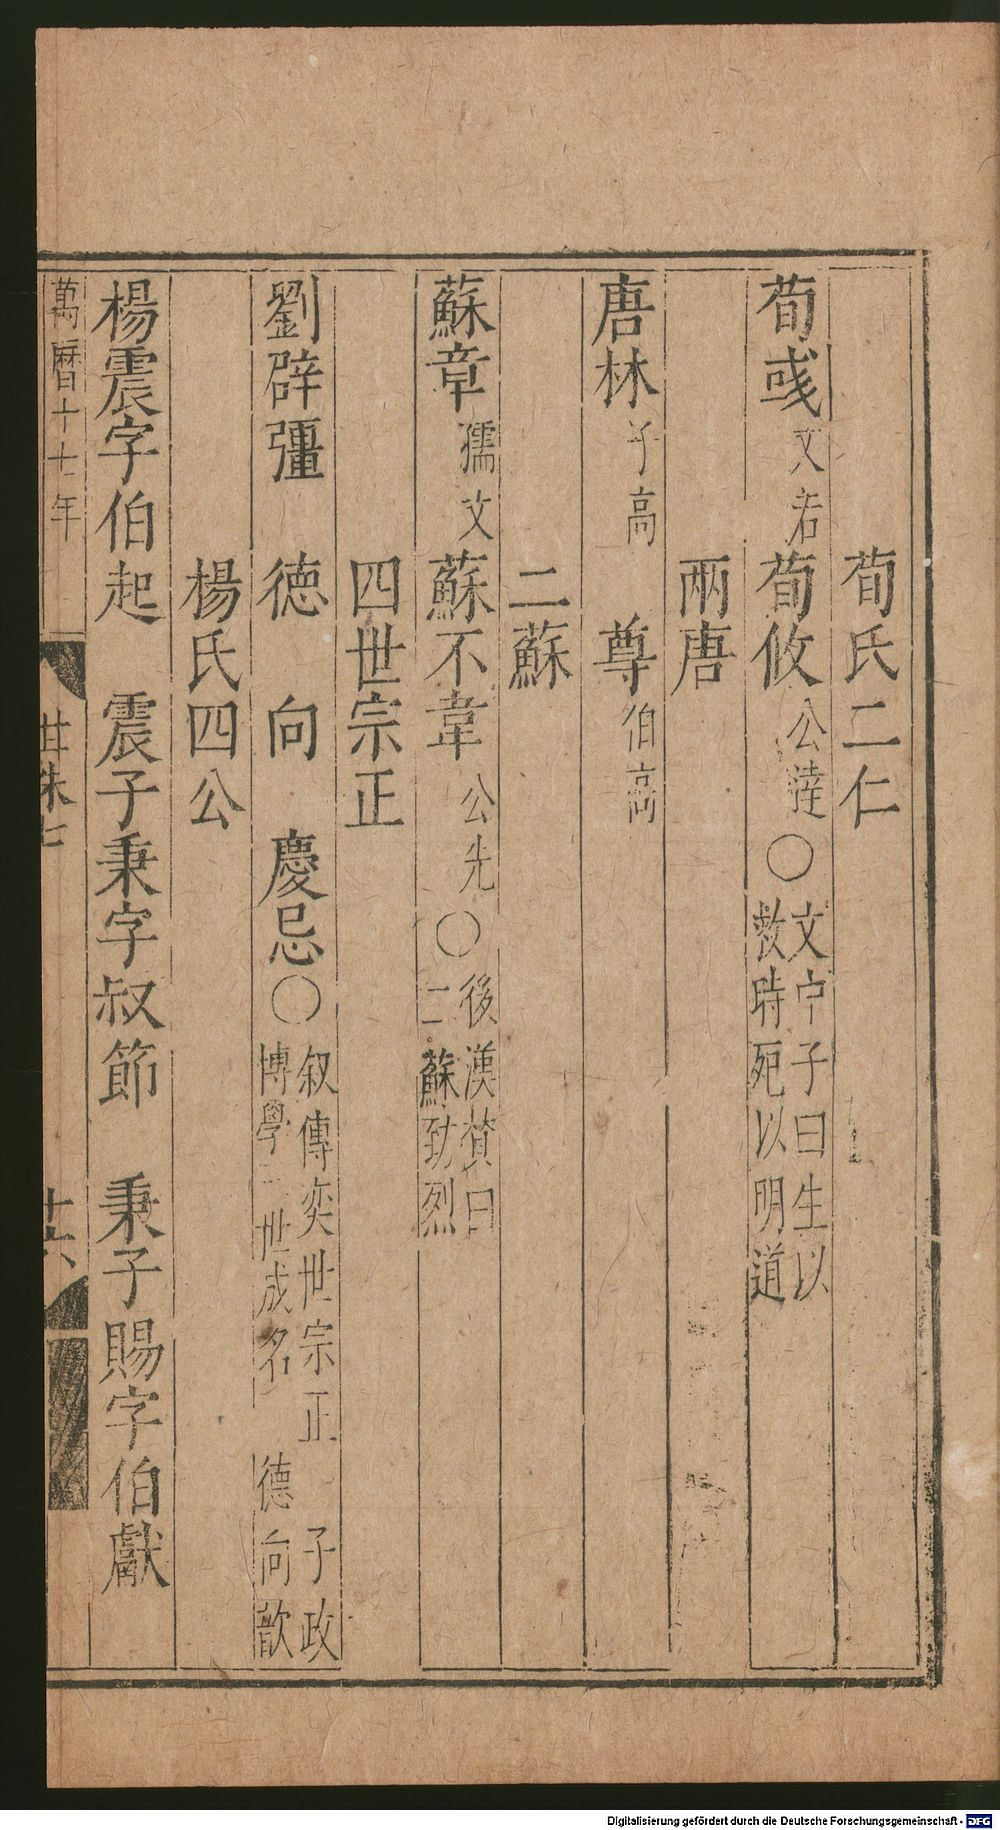 荀氏二仁
荀彧文若 荀攸公達〇文中子曰生以救時死以明道
兩唐
唐林子高 尊伯高
二蘇
蘇章孺文 蘇不韋公先〇後漢賛曰二蘇勁烈
四世宗正
劉辟彊 德 向 慶忌〇叙傳奕世宗正 子政博學三世成名 德向歆
楊氏四公
楊震字伯起 震子秉字叔節 秉子賜字伯獻
萬曆十七年 廿珠七 廿六
Digitalisierung gefördert durch die Deutsche Forschungsgemeinschaft - DFG